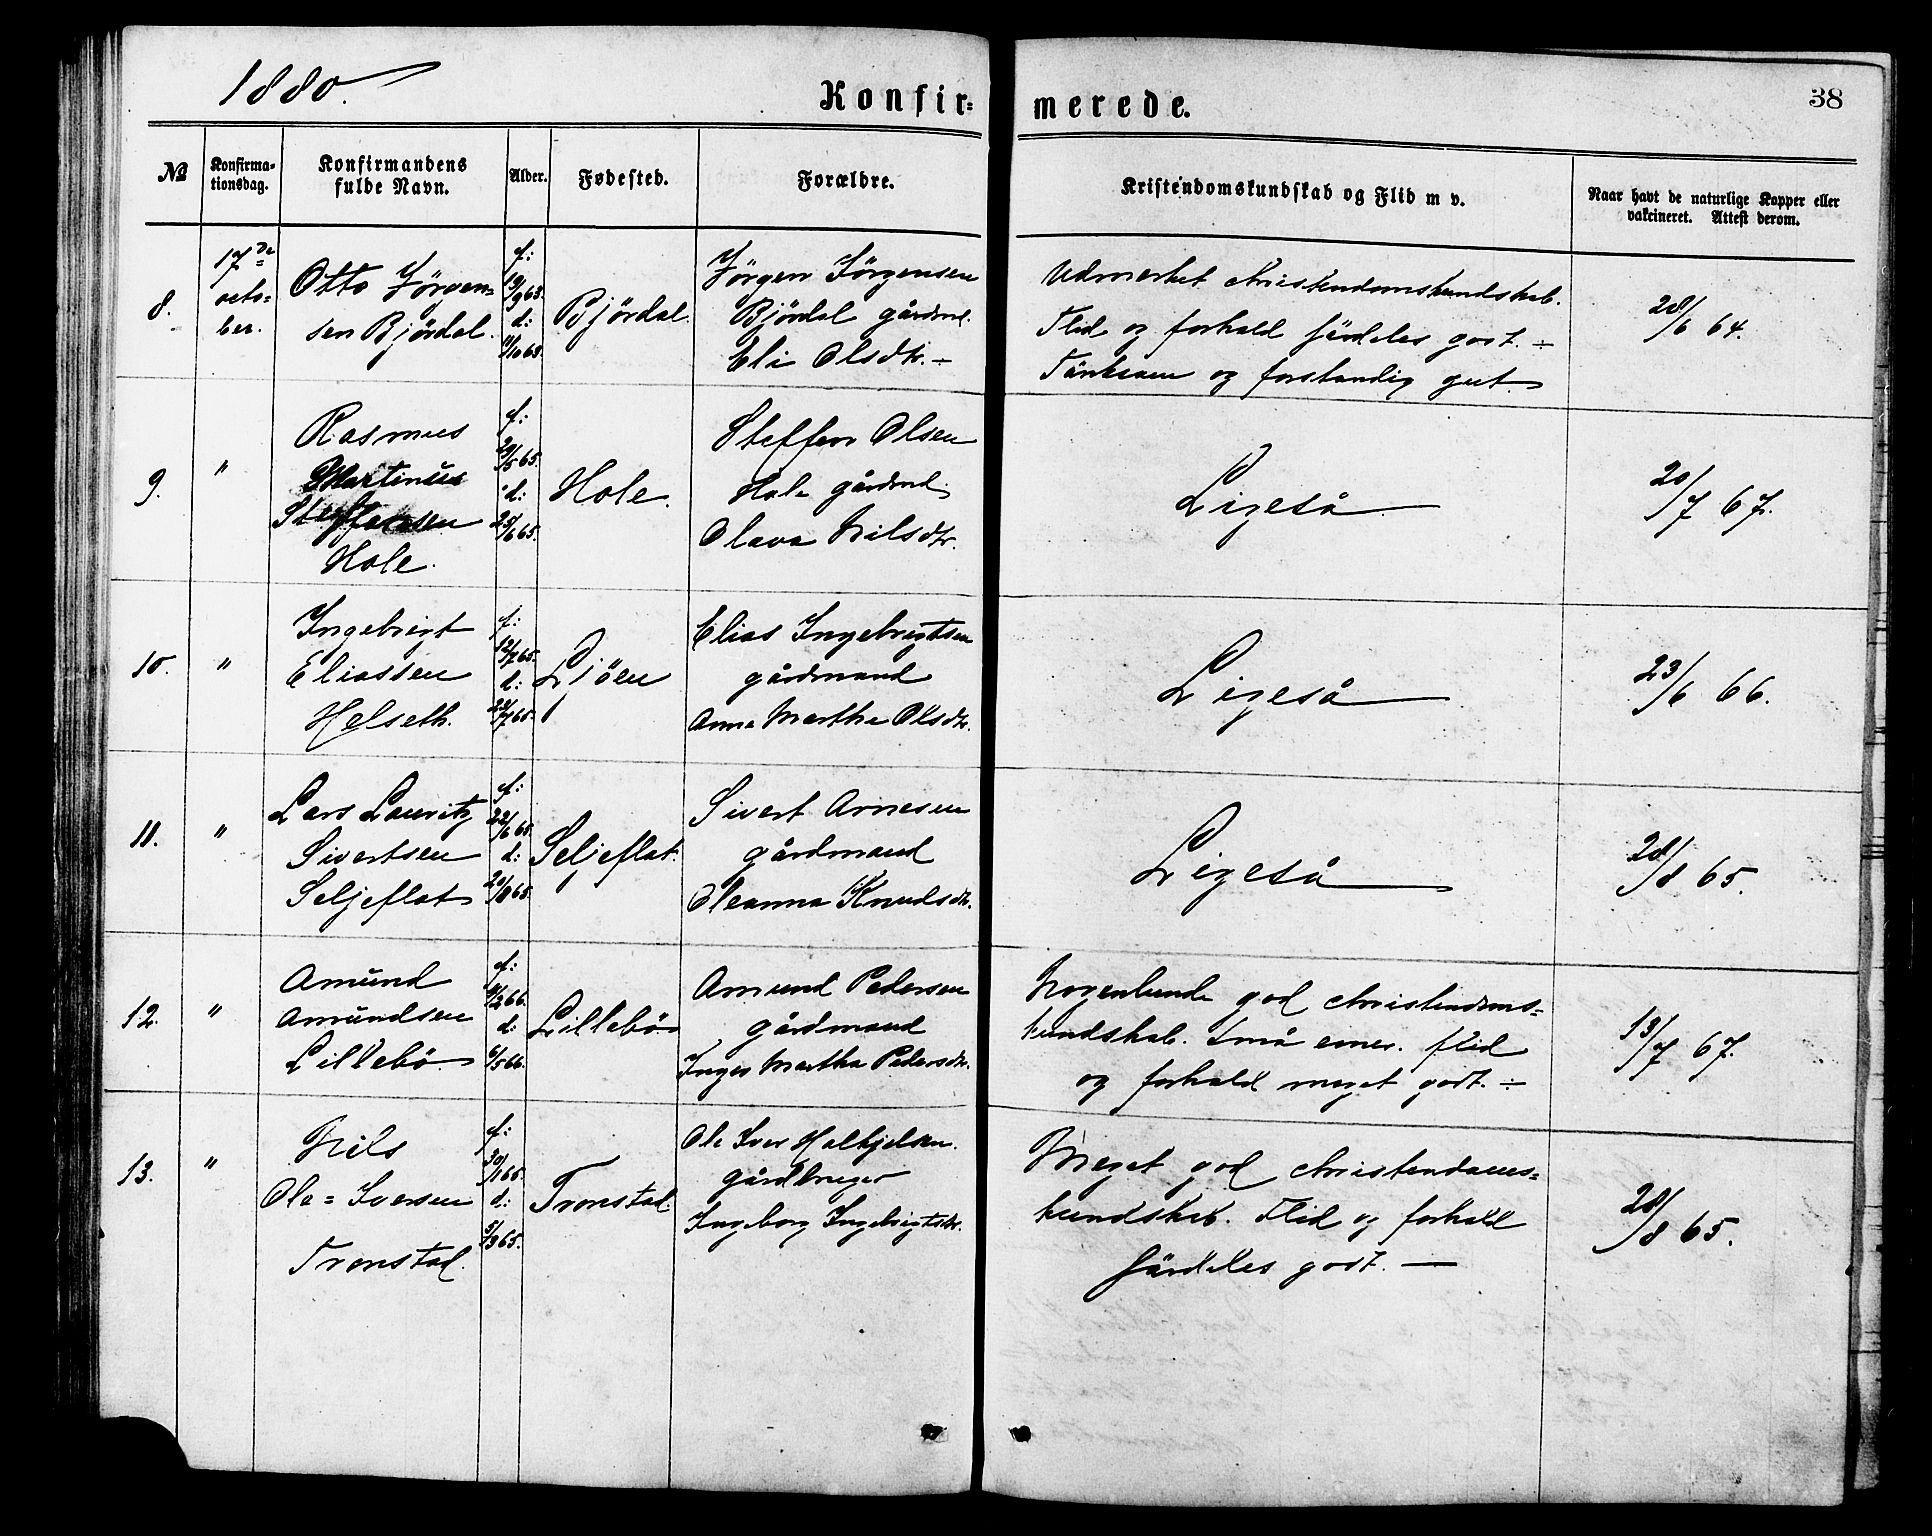 1880.
Konfir-
merede.
38
№
Konfirma-
tionsdag.
Konfirmandens
fulde Navn.
Alder.
Fødested.
Forældre.
Kristendomskundskab og Flid m v.
Naar havt de naturlige Kopper eller
vakcineret. Attest derom.
8.
17de
octo-
ber.
Otto Jörgen-
sen Björdal.
f:
19/9 63.
d:
11/10 63.
Björdal.
Jörgen Jörgensen
Björdal gårdmd.
Eli Olsdtr. -
Udmerket christendomskundskab.
Flid og forhold særdeles godt. -
Tänksom og forstandig gut
28/6 64.
9.
"
Rasmus
Martinus
Steffensen
Hole.
f:
29/5 65.
d:
25/6 65.
Hole.
Steffen Olsen
Hole gårdmd.
Olava Nilsdtr.
Ligeså
20/7 67.
10.
"
Ingebrigt
Eliassen
Helseth.
f:
12/7 65.
d:
23/7 65.
Ljöen
Elias Ingebrigtsen
gårdmand
Anna Martha Olsdtr.
Ligeså
23/6 66.
11.
"
Lars Lauritz
Sivertsen
Seljeflot
f:
22/6 65.
d:
20/8 65.
Seljeflot.
Sivert Arnesen
gårdmand
Oleanna Knudsdtr.
Ligeså
28/8 65.
12.
"
Amund
Amundsen
Lillebö
f:
d:
6/5 66.
Lillebö
Amund Pedersen
gårdmand
Inger Martha Pedersdtr.
Nogenlunde god christendoms-
kundskab. Små evner. flid
og forhold meget godt. -
13/7 67.
13.
"
Nils
Ole-Iversen
Tronstad.
f:
30/1 65.
d:
5/3 65.
Tronstad.
Ole Iver Halkjelsen.
gårdbruger
Ingeborg Ingebrigtsdtr.
Meget god christendoms-
kundskab. Flid og forhold
særdeles godt. -
28/8 65.